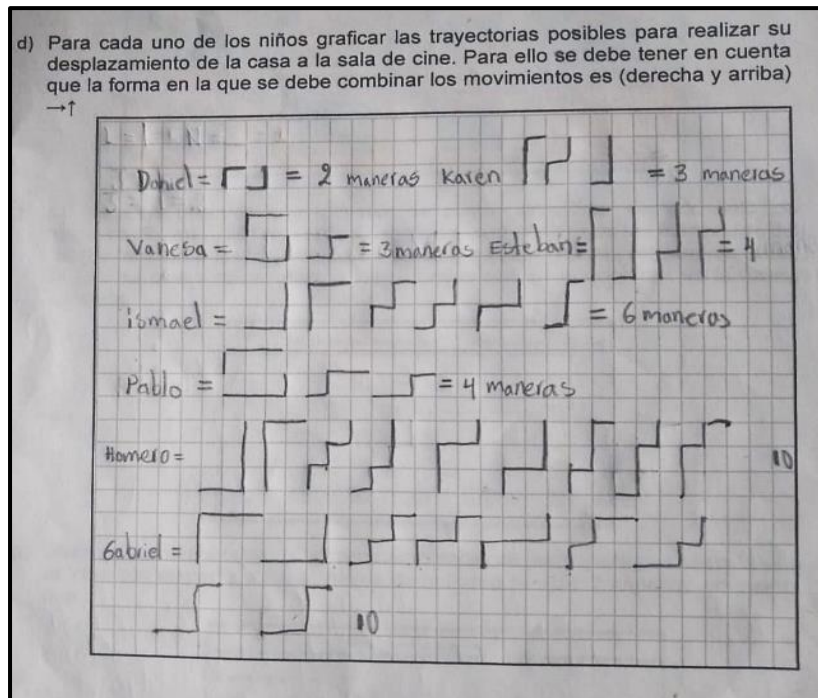 d) Para cada uno de los niños graficar las trayectorias posibles para realizar su
desplazamiento de la casa a la sala de cine. Para ello se debe tener en cuenta
que la forma en la que se debe combinar los movimientos es (derecha y arriba)
→↑
Daniel = = 2 maneras Karen = 3 maneras
Vanesa = = 3 maneras Esteban = = 4
ismael = = 6 maneras
Pablo = = 4 maneras
Homero = 10
Gabriel =
10